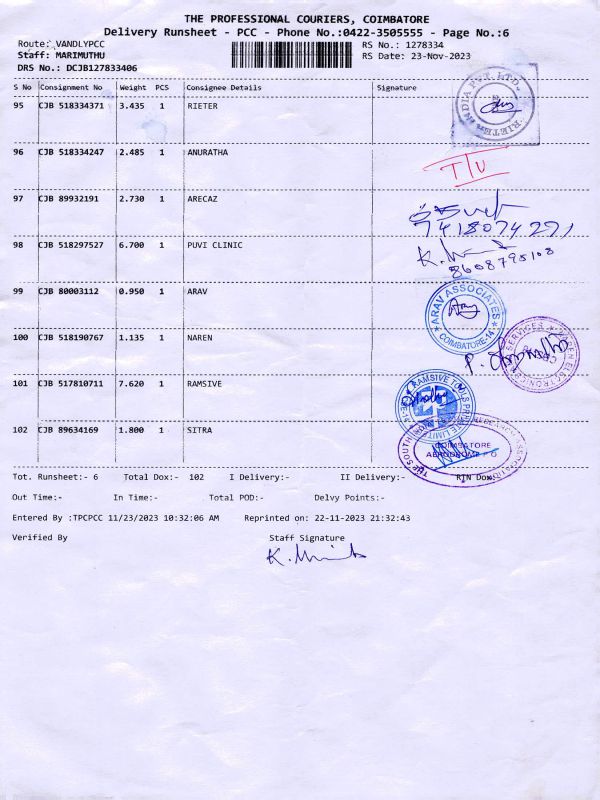 THE PROFESSIONAL COURIERS, COIMBATORE
Delivery Runsheet - PCC - Phone No.:0422-3505555 - Page No.:6
Route: VANDLYPCC RS No.: 1278334
Staff: MARIMUTHU RS Date: 23-Nov-2023
DRS No.: DCJB127833406
S No Consignment No Weight PCS Consignee Details Signature
95 CJB 518334371 3.435 1 RIETER
RIETER INDIA PVT. LTD.
96 CJB 518334247 2.485 1 ANURATHA
T/U
97 CJB 89932191 2.730 1 ARECAZ
7418074271
98 CJB 518297527 6.700 1 PUVI CLINIC
8608795108
99 CJB 80003112 0.950 1 ARAV
ARAV ASSOCIATES
COIMBATORE-14
100 CJB 518190767 1.135 1 NAREN
101 CJB 517810711 7.620 1 RAMSIVE
102 CJB 89634169 1.800 1 SITRA
COIMBATORE
AERODROME P O
Tot. Runsheet:- 6 Total Dox:- 102 I Delivery:- II Delivery:- RTN Dox
Out Time:- In Time:- Total POD:- Delvy Points:-
Entered By :TPCPCC 11/23/2023 10:32:06 AM Reprinted on: 22-11-2023 21:32:43
Verified By Staff Signature